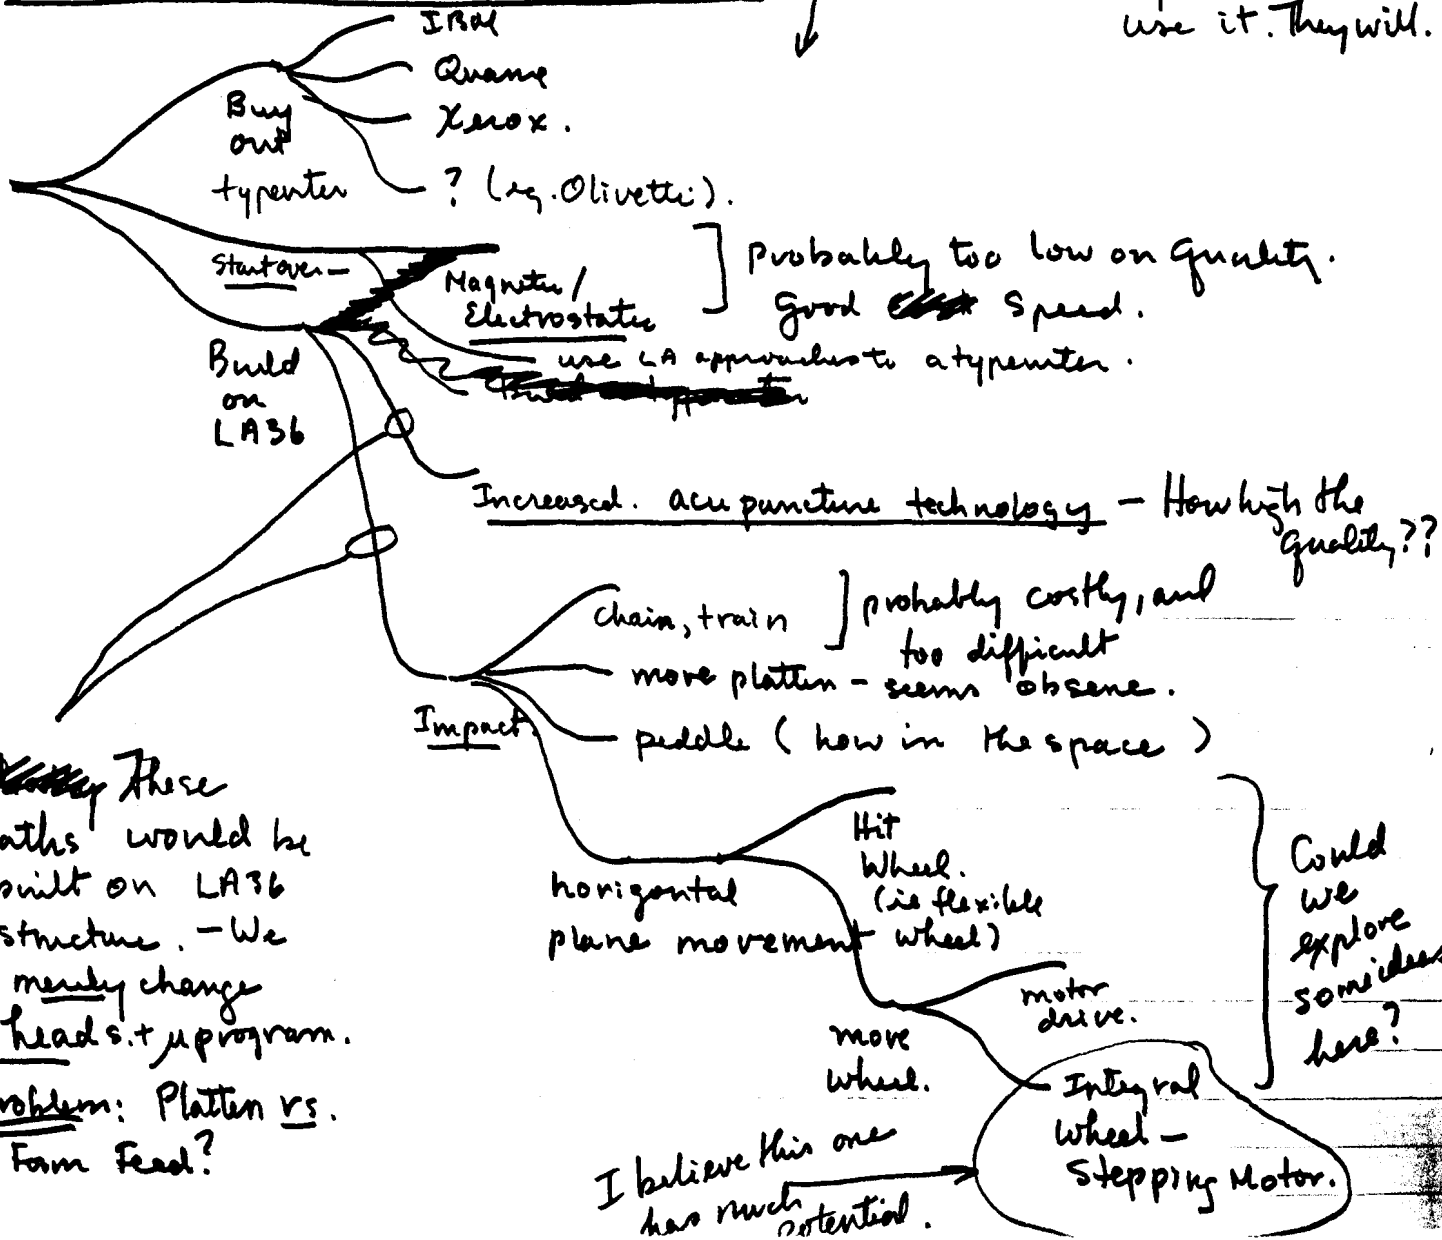 use it. They will.
IBM
Qume
Xerox.
? (eg. Olivetti).
Buy
out
typewriter
Start over —
Magnetic /
Electrostatic
probably too low on quality.
Good speed.
use LA approaches to a typewriter.
Build
on
LA36
Increased. acupuncture technology — How high the
quality??
chain, train
probably costly, and
too difficult
move platten — seems obsene.
peddle (how in the space)
Impact.
These
aths would be
built on LA36
structure. — We
merely change
heads. + µprogram.
roblem: Platten vs.
Form Feed?
horizontal
plane movement
Hit
Wheel.
(ie flexible
wheel)
move
wheel.
motor
drive.
Integral
Wheel —
Stepping Motor.
Could
we
explore
some ideas
here?
I believe this one
has much
potential.